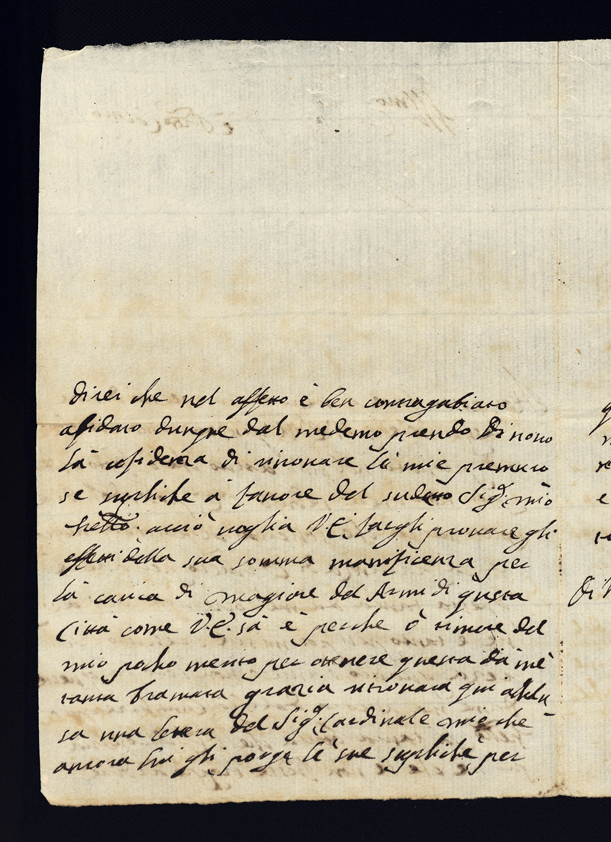 direi che nel affetto è ben contragabiato
afidato dunque dal medemo prendo di novo
la cofidenza di rinovare le mie premuro
se supliche à favore del sudetto Sig.r mio
acciò voglia V.E. fargli provare gli
effetti della sua somma manificenza per
la carica di magiore del Armi di questa
Città come V.E. sà è perche ò timore del
mio pocho merito per otenere questa da mè
tanta bramata grazia ritrovarà qui acclu
sa una letera del Sig.r Cardinale mio che
ancora lui gli porge le sue supliche per